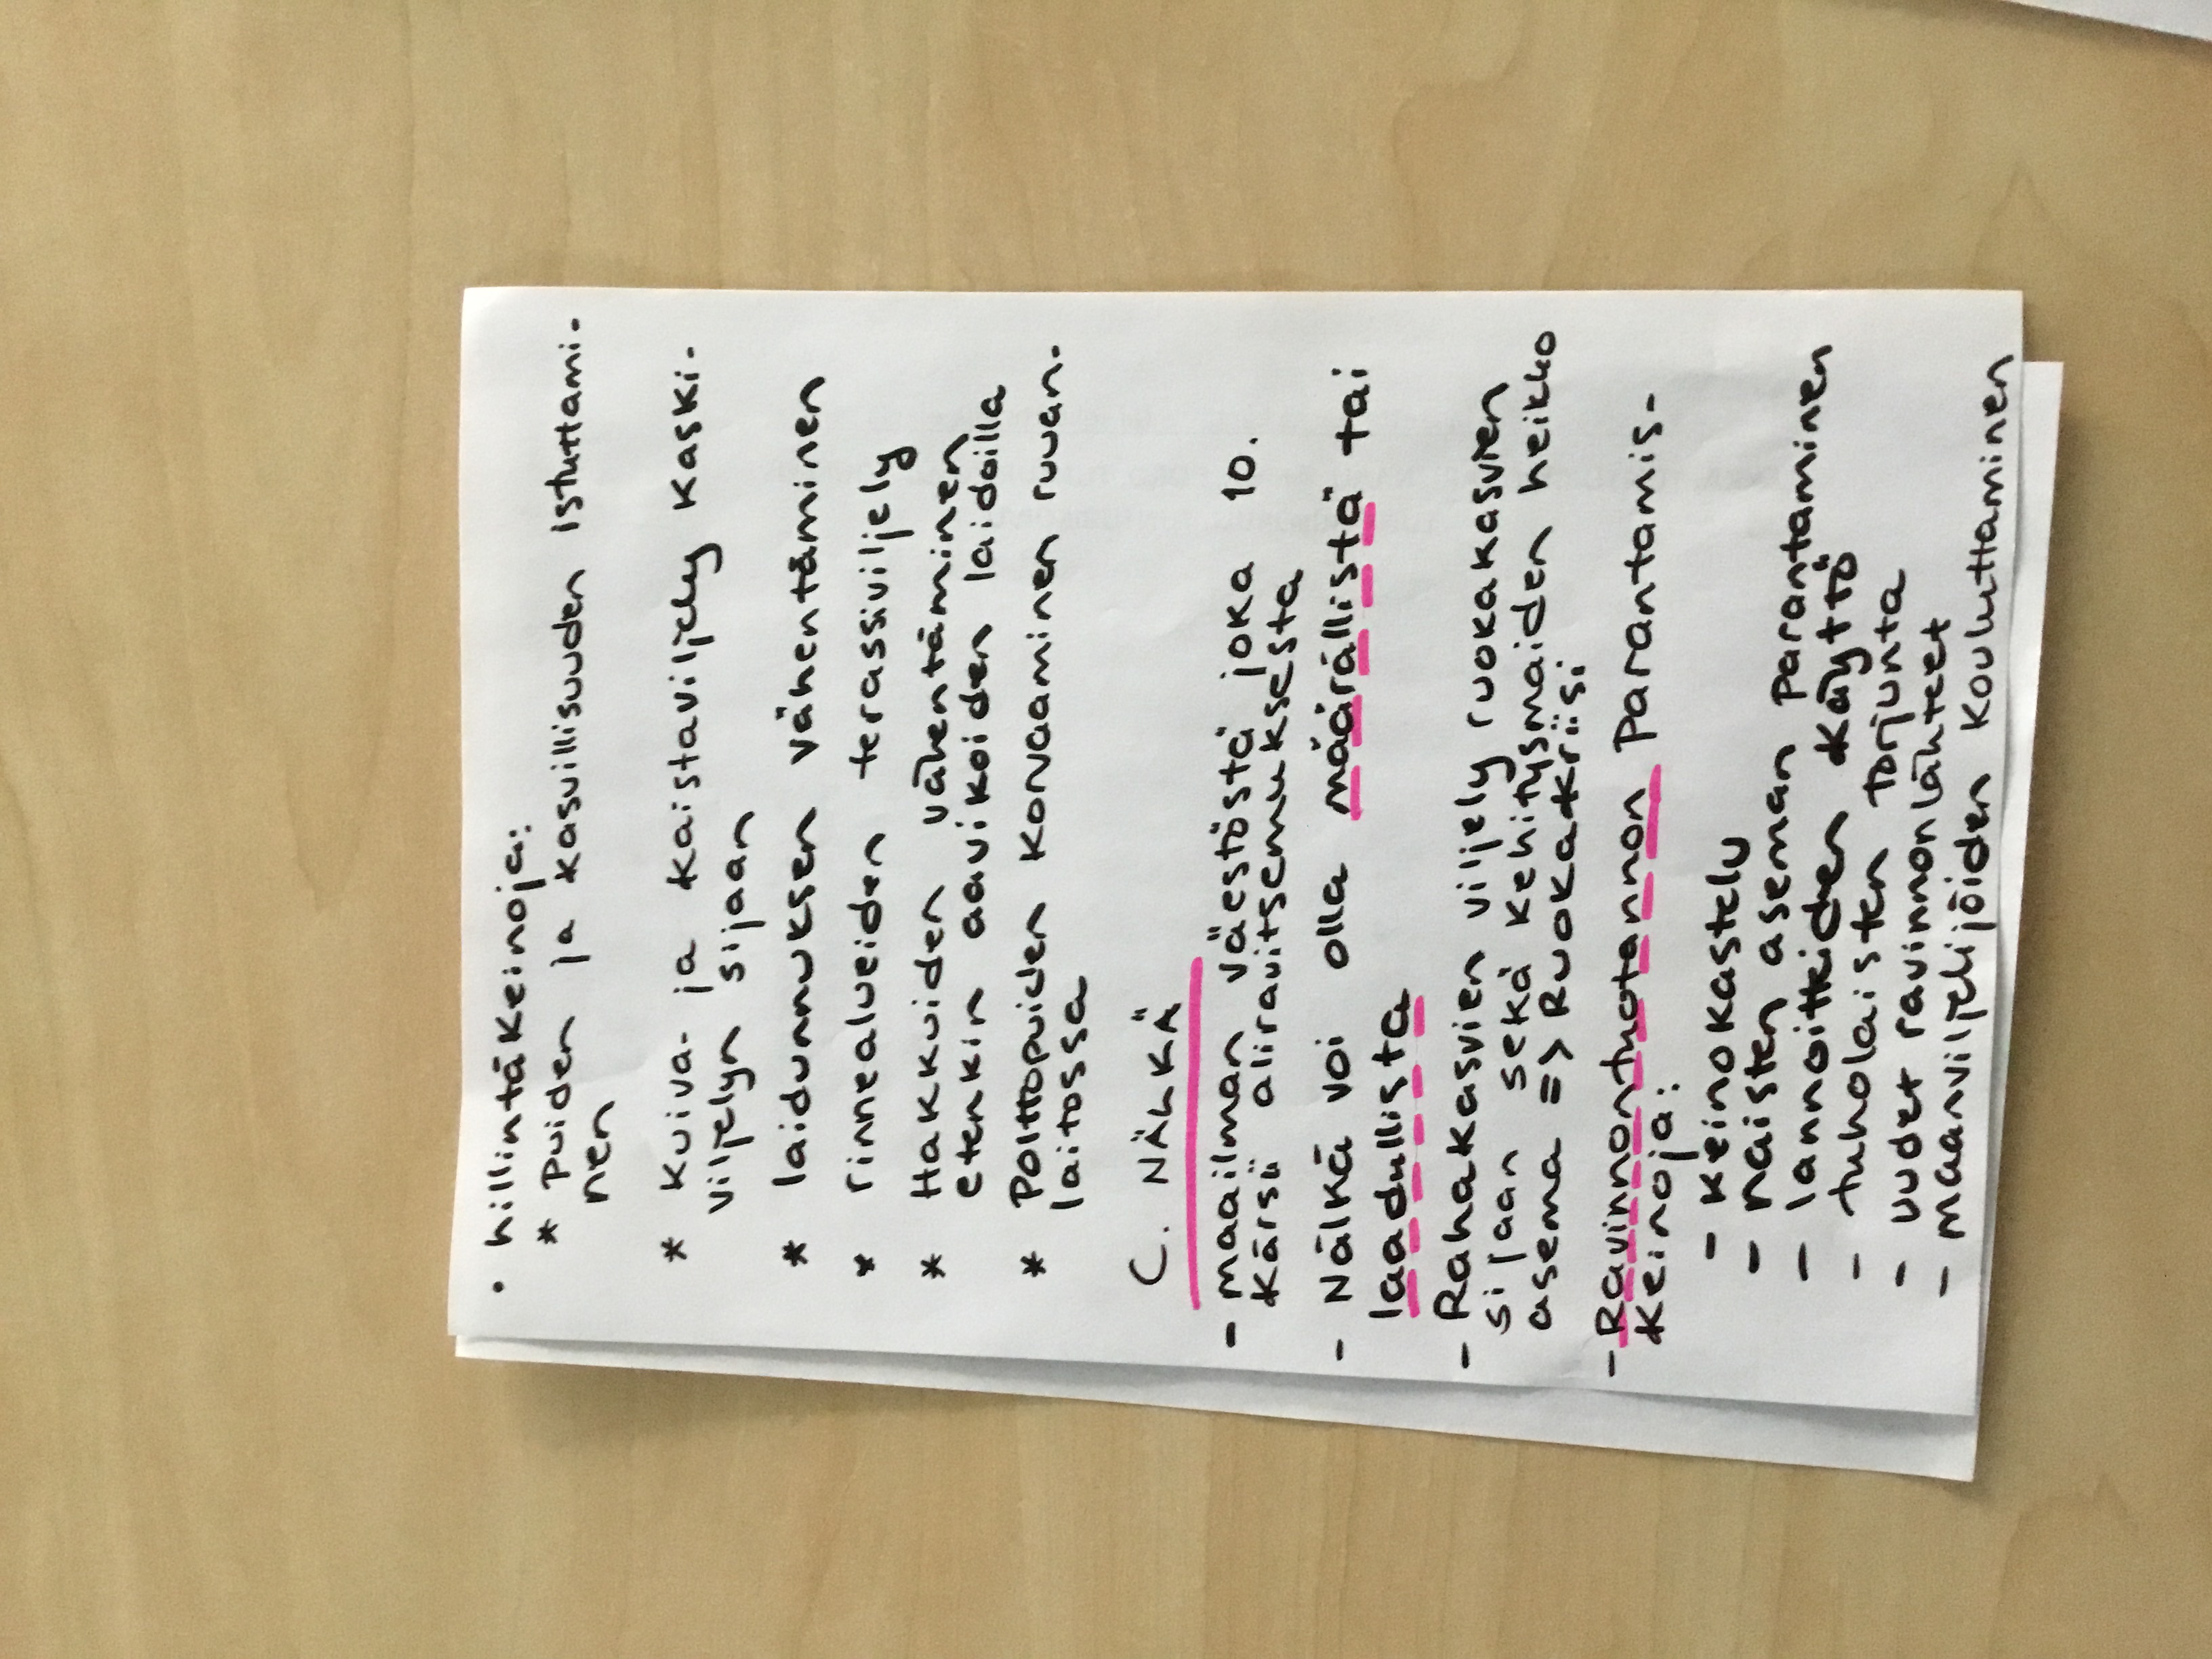 • hillintäkeinoja:
* puiden ja kasvillisuuden istuttami-
nen
* Kuiva- ja kaistaviljely kaski-
viljelyn sijaan
* laidunnuksen vähentäminen
* rinnealueiden terassiviljely
* Hakkuiden vähentäminen
etenkin aavikoiden laidoilla
* Polttopuiden korvaaminen ruuan-
laitossa
C. NÄHKÄ
- maailman väestöstä joka 10.
kärsii aliravitsemuksesta
- Nälkä voi olla määrällistä tai
laadullista
- Rahakasvien viljely ruokakasvien
sijaan sekä kehitysmaiden heikko
asema => Ruokakriisi
- Ravinnontuotannon parantamis-
keinoja:
- keinokastelu
- naisten aseman parantaminen
- lannoitteiden käyttö
- tuholaisten torjunta
- uudet ravinnonlähteet
- maanviljelijöiden kouluttaminen